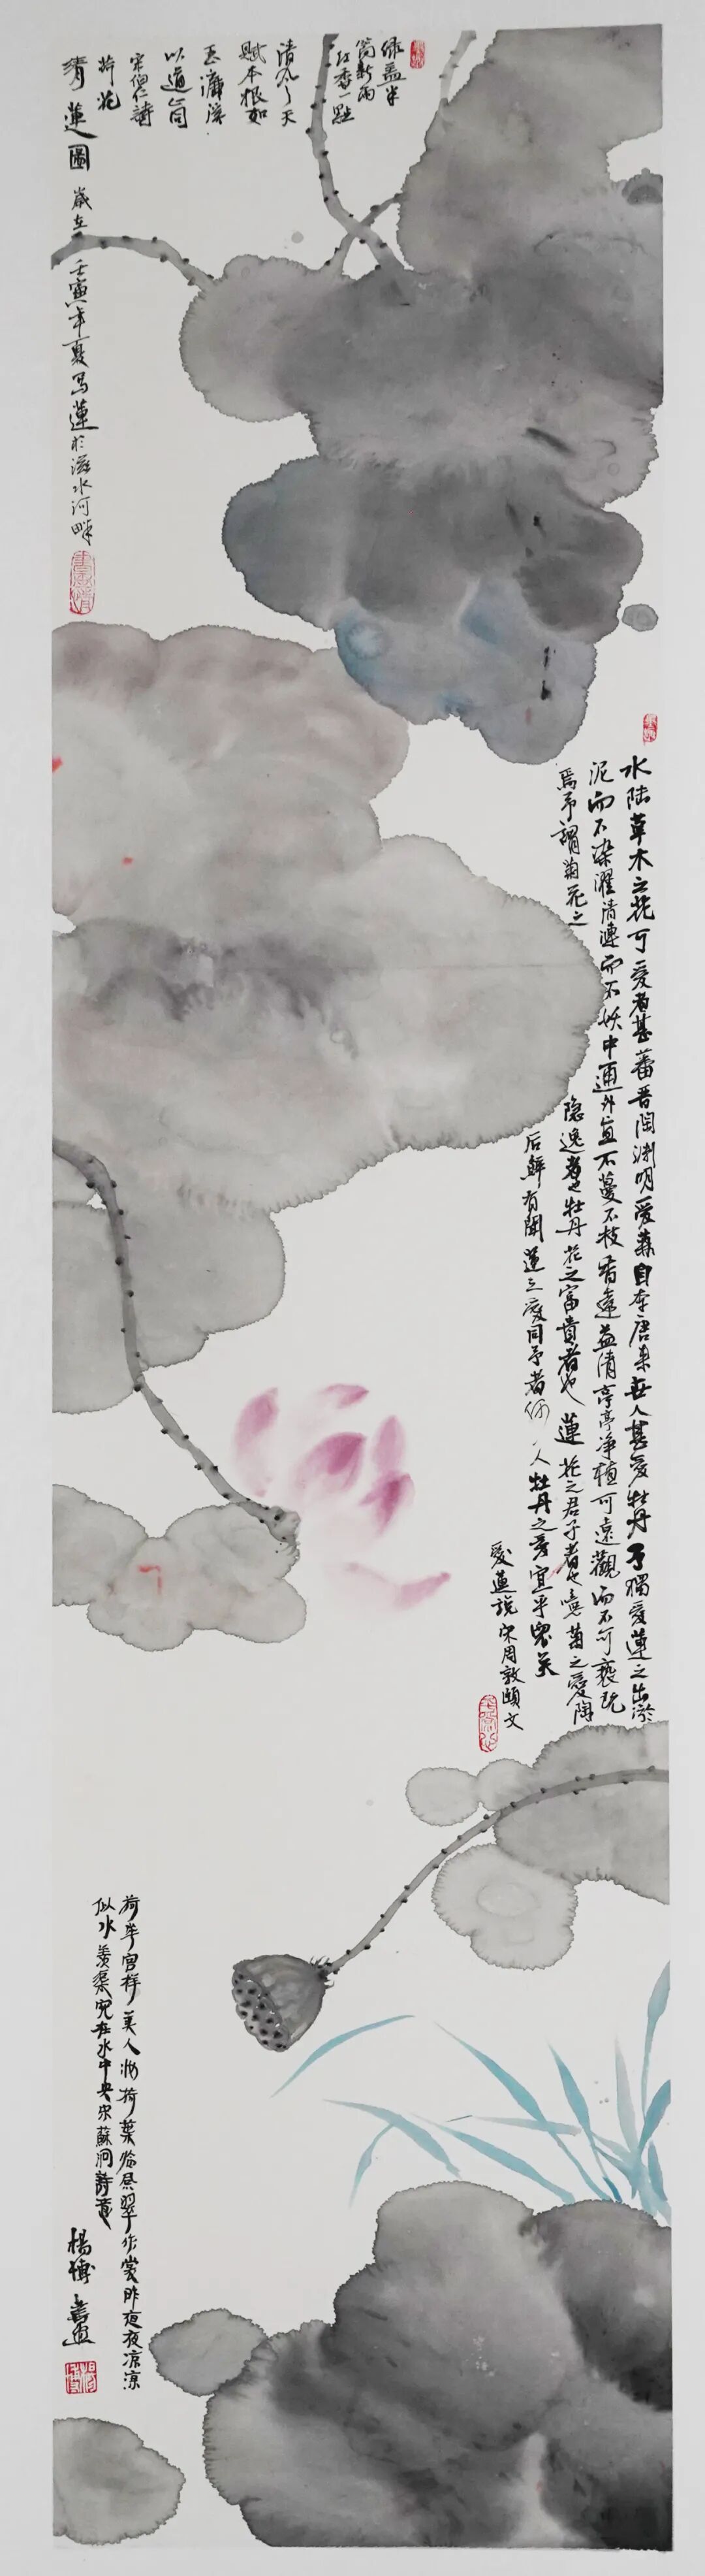 绿盖半
篙新雨
红香一點
清风天
赋本根如
玉濂溪
以道同
宋伯仁詩
荷花
清蓮圖 歲在壬寅年夏写蓮於滋水河畔
水陆草木之花可爱者甚蕃晋陶渊明爱菊自李唐来世人甚愛牡丹予獨愛蓮之出淤
泥而不染濯清漣而不妖中通外直不蔓不枝香遠益清亭亭净植可遠觀而不可褻玩
焉予謂菊花之隐逸者也牡丹花之富貴者也蓮花之君子者也噫菊之愛陶
后鮮有聞蓮之愛同予者何人牡丹之爱宜乎衆矣
爱蓮說宋周敦頤文
荷华宫样美人妆荷葉临風翠作裳昨夜夜凉凉
似水羡渠宛在水中央宋蘇泂詩意
楊博